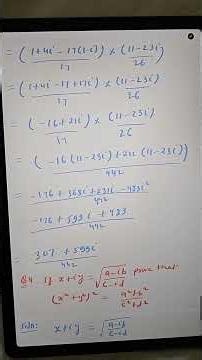 = (1+4i-17(1-i)/17) × (11-23i/26)
= (1+4i-17+17i/17) × (11-23i/26)
= (-16+21i/17) × (11-23i/26)
= (-16(11-23i)+21i(11-23i)/442)
= -176+368i+231i-483i²/442
= -176+599i+483/442
= 307+599i/442
Q4. If x+iy = √a-ib/c-id prove that
(x²+y²)² = a²+b²/c²+d²
Soln: x+iy = √a-ib/c-id